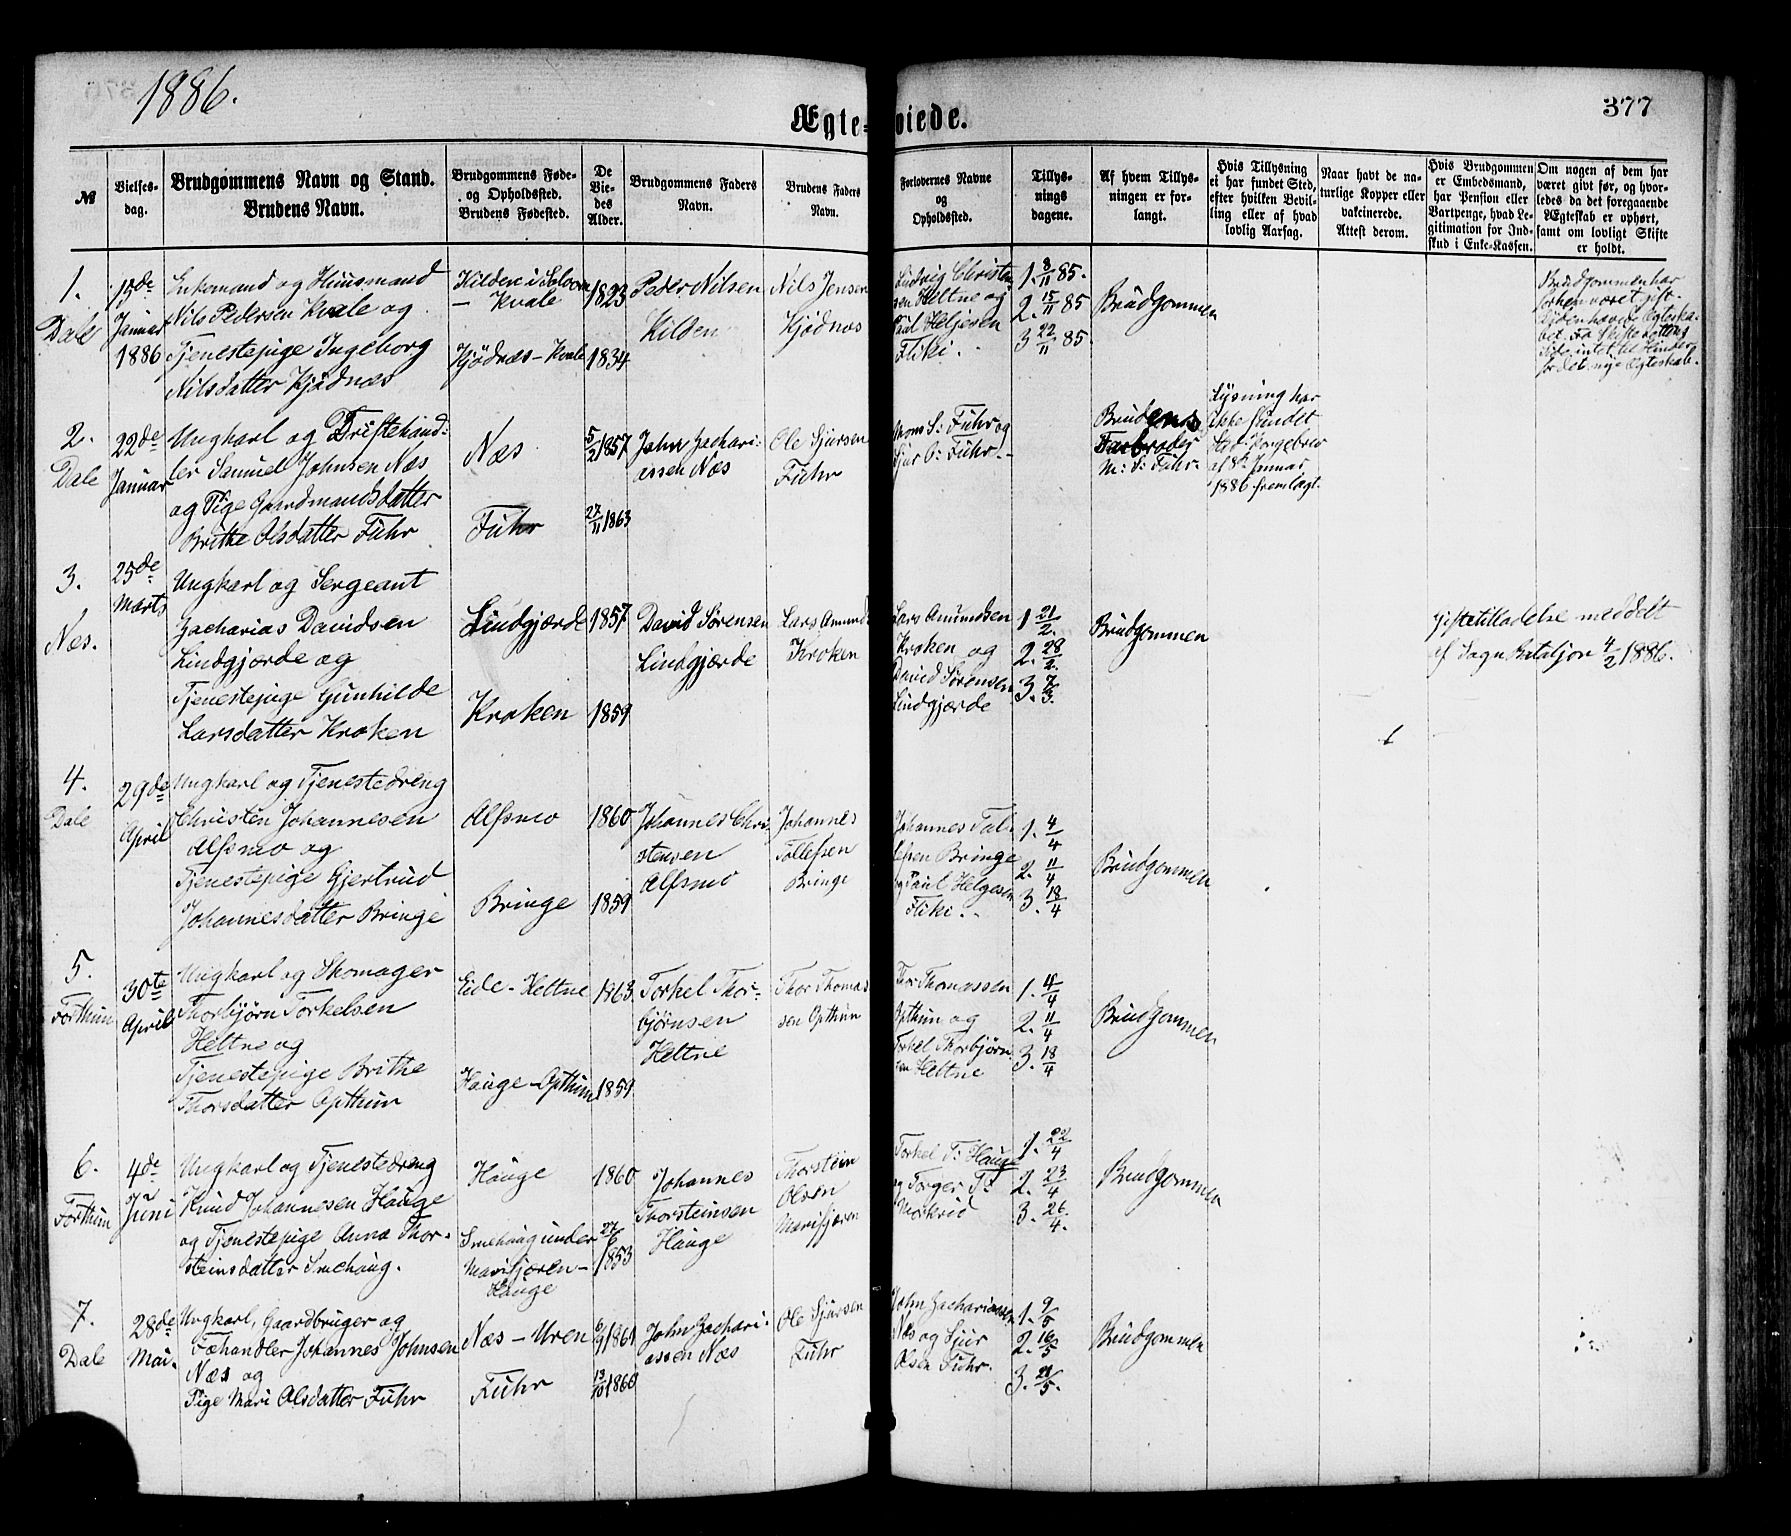 1886.
Ægte-
viede.
377
№
Vielses-
dag.
Brudgommens Navn og Stand.
Brudens Navn.
Brudgommens Føde-
og Opholdssted.
Brudens Fødested.
De
Vie-
des
Alder.
Brudgommens Faders
Navn.
Brudens Faders
Navn.
Forlovernes Navne
og
Opholdssted.
Tillys-
nings
dagene.
Af hvem Tillys-
ningen er for-
langt.
Hvis Tillysning
ei har fundet Sted,
efter hvilken Bevil-
ling eller af hvad
lovlig Aarsag.
Naar havt de na-
turlige Kopper eller
vakcinerede.
Attest derom.
Hvis Brudgommen
er Embedsmand,
har Pension eller
Vartpenge, hvad Le-
gitimation for Ind-
skud i Enke-Kassen.
Om nogen af dem har
været gift før, og hvor-
ledes da det foregaaende
Ægteskab er ophørt,
samt om lovligt Skifte
er holdt.
1.
Dale
15de
Januar
1886
Enkemand og Huusmand
Nils Pedersen Kvale og
Tjenestepige Ingeborg
Nilsdatter Kjødnæs
Kilden i
– Kvale
Kjødnæs – Kvale
1823
1834
Peder Nilsen
Kilden
Nils Jensen
Kjødnæs
Ludvig Christen
sen Heltne og
Paul Helgesen
Fliki.
1. 8/11 85.
2. 15/11 85
3 22/11 85.
Brudgommen
Brudgommen har
forhen været gift.
for det nye Ægteskab.
2.
Dale
22de
Januar
Ungkarl og Driftehand-
ler Samuel Johnsen Næs
og Pige Gaardmandsdatter
Brithe Olsdatter Fuhr
Næs
Fuhr
5/2 1857
27/11 1863
John Zachari-
assen Næs
Ole Sjursen
Fuhr
Mons S: Fuhr og
Sjur O: Fuhr.
Brudens
Farbroder
M: S: Fuhr.
Lysning har
ikke fundet
Sted. Kongebrev
af 8de Januar
1886 fremlagt.
3.
Næs.
25de
Marts
Ungkarl og Sergeant
Zacharias Davidsen
Lindgjærde og
Tjenestepige Gunhilde
Larsdatter Kroken
Lindgjærde
Kroken
1857
1859
David Sørensen
Lindgjærde
Lars Amunds
Kroken
Lars Amundsen
Kroken og
David Sørensen
Lindgjærde
1 21/2.
2. 28/2.
3. 7/3.
Brudgommen
Giftetilladelse meddelt
af Sogn Bataljon 4/2 1886.
4.
Dale
29de
April
Ungkarl og Tjenestedreng
Christen Johannesen
Alfsmo og
Tjenestepige Gjertrud
Johannesdatter Bringe
Alfsmo
Bringe
1860
1859
Johannes Chri
stensen
Alfsmo
Johannes
Tollefsen
Bringe
Johannes Tol-
lefsen Bringe
og Paul Helgesen
Fliki.
1. 4/4
2. 11/4
3. 18/4
Brudgommen
5.
Forthun
30te
April
Ungkarl og Skomager
Thorbjørn Torkelsen
Heltne og
Tjenestepige Brithe
Thorsdatter Opthun
Eide – Heltne
Hauge – Opthun
1863
1859
Torkel Thor-
bjørnsen
Heltne
Thor Thomas
sen Opthun
Thor Thomassen
Opthun og
Torkel Thorbjørn
sen Heltne
1. 4/4
2. 11/4
3. 18/4
Brudgommen
6.
Forthun
4de
Juni
Ungkarl og Tjenestedreng
Knud Johannesen Hauge
og Tjenestepige Anna Thor-
steinsdatter Smehaug.
Hauge
Smehaug under
Marifjæren –
Hauge
1860
27/6 1853
Johannes
Thorsteinsen
Hauge
Thorstein
Olsen
Marifjæren
Torkel T: Hauge
og Torger T:
Mørkrid
1. 22/4
2. 23/4
3. 26/4.
Brudgommen
7.
Dale
28de
Mai.
Ungkarl, Gaardbruger og
Fæhandler Johannes Johnsen
Næs og
Pige Mari Olsdatter Fuhr
Næs – Uren
Fuhr
6/9 1861
13/10 1860
John Zachari-
assen Næs
Ole Sjursen
Fuhr
John Zachariassen
Næs og Sjur
Olsen Fuhr.
1. 9/5
2. 16/5
3. 21/5.
Brudgommen